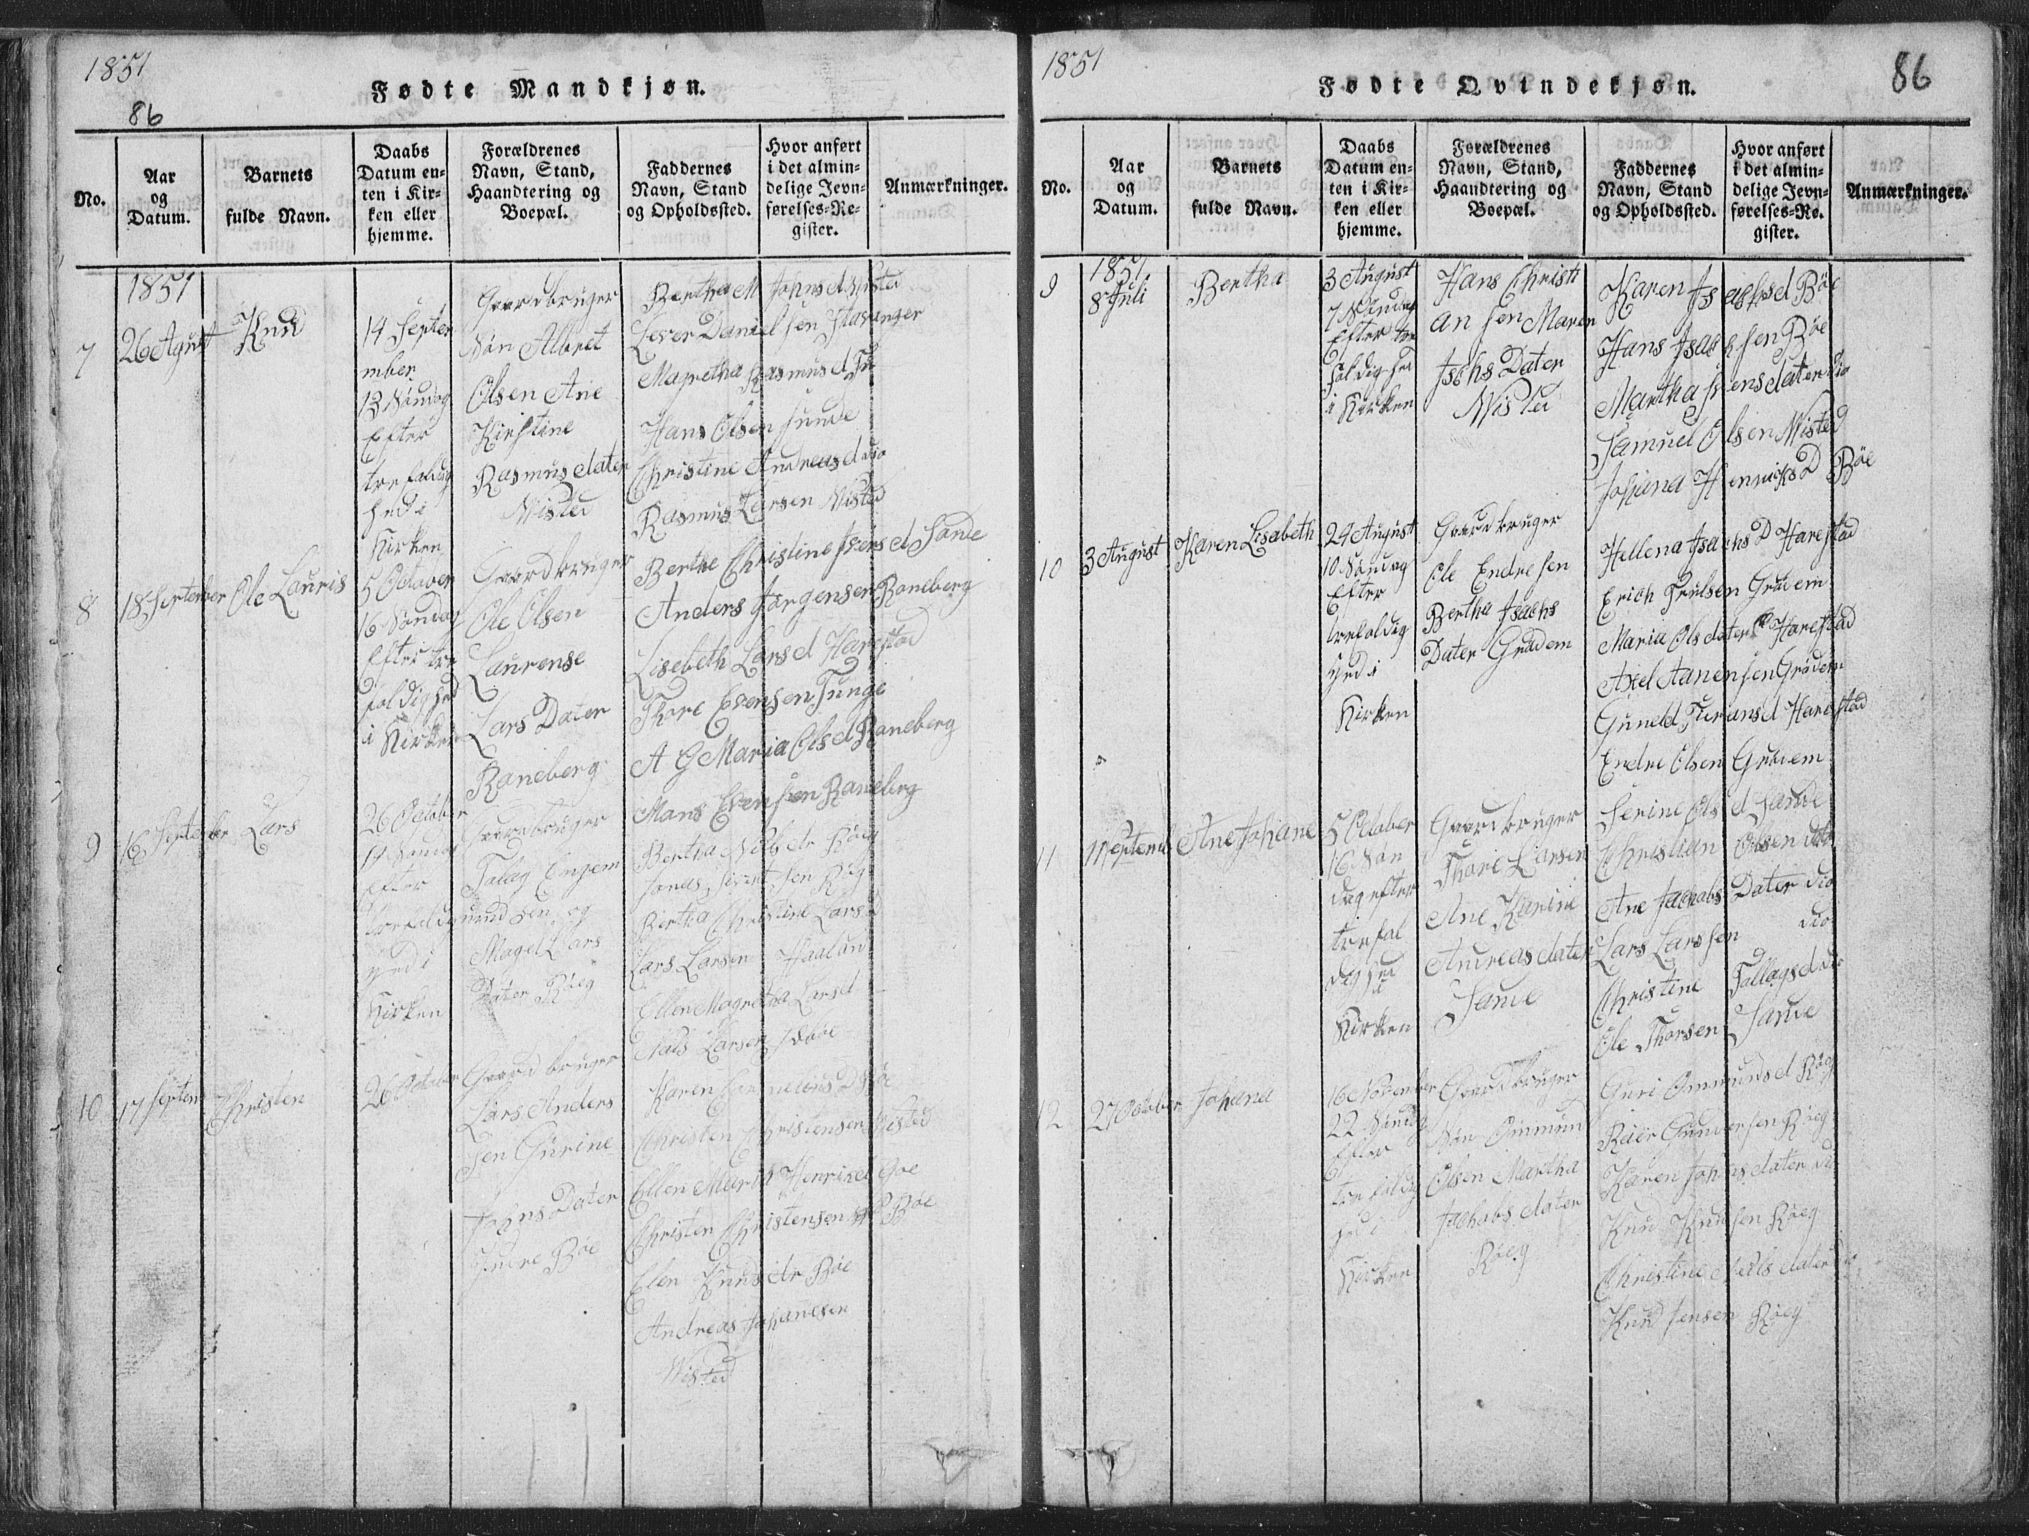 1851
86
Fødte Mandkjøn.
No.
Aar
og
Datum.
Barnets
fulde Navn.
Daabs
Datum en-
ten i Kir-
ken eller
hjemme.
Forældrenes
Navn, Stand,
Haandtering og
Boepæl.
Faddernes
Navn, Stand
og Opholdssted.
Hvor anført
i det almin-
delige Jevn-
førelses-Re-
gister.
Anmærkninger.
1851
7
26 Agust
Knud
14 Septer
mber
13 Søndag
Efter
trefoldig
hed i
Kirken
Gaardbruger
Søn Albret
Olsen Ane
Kirstine
Rasmusdater
Wisted
Bertha M Johnsd Wisted
Daniel sen Stavanger
Magretha Rasmusd
Hans Olsen Sunde
Christine Andreasd dio
Rasmus Larsen Wisted
8
18 September
Ole Lauris
5 October
16 Søndag
Efter tre
foldighed
i Kirken
Gaardbruger
Ole Olsen
Laurense
Lars Dater
Raneberg
Berthe Christine Iversd Sande
Anders Jørgensen Raneberg
Lisebeth Larsd Harestad
Thore Evensen Tunge
A G Maria Olsd Raneberg
Mans Evensen Raneberg
9
16 September
Lars
26 October
Søndag
Efter
trefoldig
hed i
Kirken
Gaardbruger
Dater Røeg
Bertha
Bertha Christine Larsd
Lars Larsen Haaland
Ellen Magretha Larsd
Niels Larsen
10
17 Septem
Christen
26 October
Gaardbruger
Lars Anders
sen Gurine
Johns Dater
Indre Bøe
Karen
Christen Christensen Wisted
Ellen Marie Henriksd Goe
Christen Christensen Bøe
Elen Knudsdr Bøe
Andreas Johanesen
Wisted
1851
86
Fødte Qvindekjøn.
No.
Aar
og
Datum.
Barnets
fulde Navn.
Daabs
Datum en-
ten i Kir-
ken eller
hjemme.
Forældrenes
Navn, Stand,
Haandtering og
Boepæl.
Faddernes
Navn, Stand
og Opholdssted.
Hvor anført
i det almin-
delige Jevn-
førelses-Re-
gister.
Anmærkninger.
1851
9
8 Juli
Bertha
3 August
7 Søndag
Efter tre
foldighed
i Kirken
Hans Christi
an sen Maren
Isachs Dater
Wisted
Karen Isachsd Bøe
Hans Isachsen Bøe
Martha Ivensdater dio
Samuel Olsen Wisted
Johana Henriks D Bøe
10
3 August
Karen Lisabeth
24 August
10 Søndag
Efter
trefoldig
hed i
Kirken
Gaardbruger
Ole Endresen
Bertha Isachs
Dater Grødem
Hellena Isachs D Harestad
Erich Trulsen Grødem
Maria Olsdater Harestad
Axel Aanensen Grødem
Guneld Harestad
Endre Olsen Grødem
11
11 Septemb
Ane Johane
5 October
16 Søn
dag efter
trefol
dighed
i
Kirken
Gaardbruger
Thore Larsen
Ane Karine
Andreasdater
Sande
Serine Olsd Sande
Christian Olsen dito
Ane Jachobs Dater dio
Lars Larssen dio
Christine Tollagsd dio
Ole Thorsen Sande
12
27 October
Johana
16 November
22 Søndag
Efter
trefoldig
hed i
Kirken
Gaardbruger
Søn Ommun
Olsen Martha
Jachobsdater
Røeg
Guri Ommundsd Røeg
Reier Gundersen Røeg
Karen Johnsdater dio
Knud Knudsen Røeg
Christine Nielsdater dio
Knud Jensen Røeg